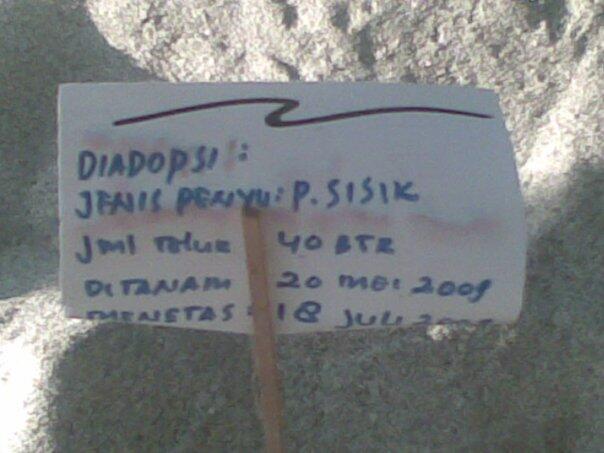 DIADOPSI :
JENIS PENYU: P. SISIK
JML TELUR 40 BTR
DITANAM 20 MEI 2009
MENETAS : 18 JULI